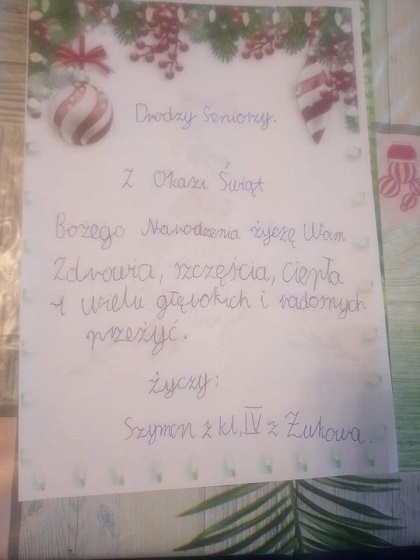 Drodzy Seniorzy.
Z Okazi Świąt
Bożego Narodzenia życzę Wam
Zdrowia, szczęścia, ciepła
i wielu głębokich i radosnych
przeżyć.
życzy:
Szymon z kl. IV z Żukowa